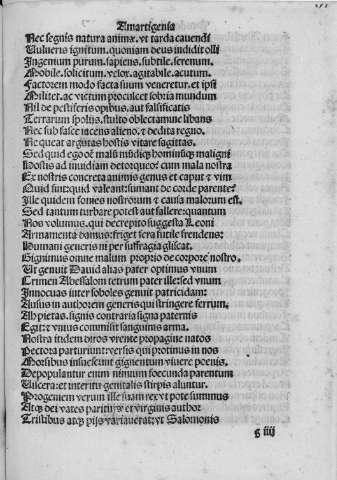 Amartigenia
Nec segnis natura animæ. vt tarda cauendi
Vulneris ignitum. quoniam deus indidit olli
Ingenium purum. sapiens. subtile. serenum.
Mobile. solicitum. velox. agitabile. acutum.
Factorem modo facta suum veneretur. et ipsi
Militet. ac victum proculcet sobria mundum
Nil de pestiferis opibus. aut falsificatis
Terrarum spolijs. stulto oblectamue libans
Nec sub fasce iacens alieno. t dedita regno.
Ne queat argutas hostis vitare sagittas.
Sed quid ego oē malū mūdiqȝ hominūqȝ maligni
Hostis ad inuidiam detorqueo? cum mala nostra
Ex nostris concreta animis genus et caput t vim
Quid sint: quid valeant: sumant de corde parente?
Ille quidem fomes nostrorum t causa malorum est.
Sed tantum turbare potest aut fallere: quantum
Nos volumus. qui decrepito suggesta Leoni
Armamenta damus: friget fera futile frendens:
Humani generis ni per suffragia gliscat.
Gignimus omne malum proprio de corpore nostro.
Ut genuit Dauid alias pater optimus vnum
Crimen Abessalom tetrum pater ille: sed vnum
Innocuas inter soboles genuit patricidam:
Ausus in authorem generis qui stringere ferrum.
Ah pietas. signis contraria signa paternis
Egit: t vnius commisit sanguinis arma.
Nostra itidem diros vrente propagine natos
Pectora parturiunt: versis qui protinus in nos
Morsibus insuescunt gignentum viuere poenis.
Depopulantur enim nimium foecunda parentum
Viscera: et interitu genitalis stirpis aluntur.
Progeniem verum ille suam rex vt pote summus
Atqȝ dei vates pariturqȝ et virginis author
Tristibus atqȝ pijs variauerat: vt Salomonis
g iiij